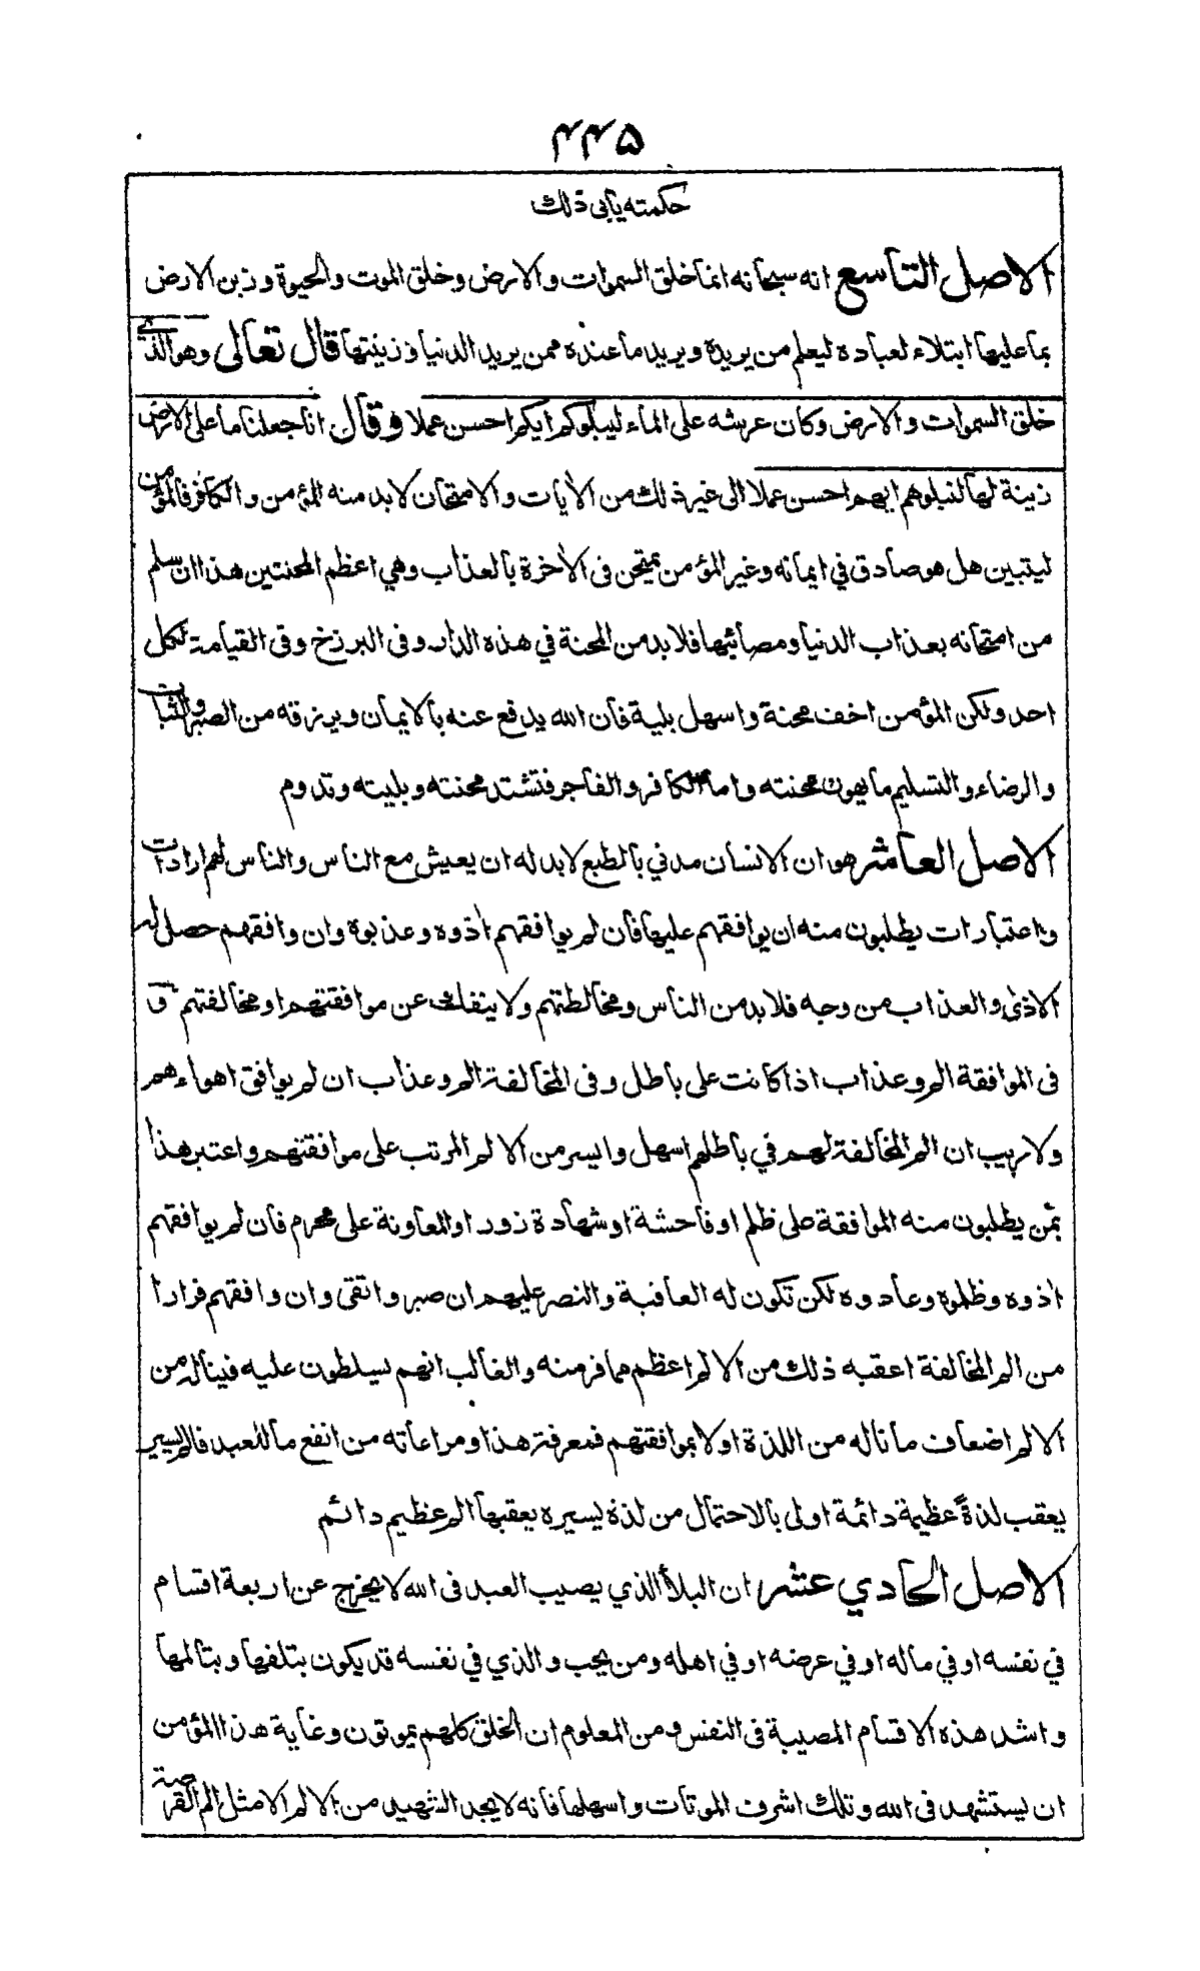 ۴۴۵
حكمته يابى ذلك
الاصل التاسع انه سبحانه انما خلق السموات والارض وخلق الموت والحيوة وزين الارض
بما عليها ابتلاء لعباده ليعلم من يريده ويريد ما عنده ممن يريد الدنيا وزينتها قال تعالى وهو الذي
خلق السموات والارض وكان عرشه على الماء ليبلوكم ايكم احسن عملا وقال انا جعلنا ما على الارض
زينة لها لنبلوهم ايهم احسن عملا الى غير ذلك من الأيات والامتحان لا بد منه المؤمن والكافر فالمؤمن
ليتبين هل هو صادق في ايمانه وغير المؤمن يمتحن فى الأخرة بالعذاب وهي اعظم المحنتين هذا ان سلم
من امتحانه بعذاب الدنيا ومصائبها فلا بد من المحنة في هذه الدار وفى البرزخ وفى القيامة لكل
احد ولكن المؤمن اخف محنة واسهل بلية فان الله يدفع عنه بالايمان ويرزقه من الصبر والثبات
والرضاء والتسليم ما يهون محنته واما الكافر والفاجر فتشتد محنته وبليته وتدوم
الاصل العاشر هو ان الانسان مدني بالطبع لا بد له ان يعيش مع الناس والناس لهم ارادات
واعتبارات يطلبون منه ان يوافقهم عليها فان لم يوافقهم أذوه وعذبوه وان وافقهم حصل له
الاذى والعذاب من وجه فلا بد من الناس ومخالطتهم ولا ينفك عن موافقتهم او مخالفتهم و
فى الموافقة الم وعذاب اذا كانت على باطل وفى المخالفة الم وعذاب ان لم يوافق اهواءهم
ولا ريب ان الم المخالفة لهم في باطلهم اسهل وايسر من الالم المرتب على موافقتهم واعتبر هذا
بمن يطلبون منه الموافقة على ظلم او فاحشة او شهادة زور او المعاونة على محرم فان لم يوافقهم
اذوه وظلموه وعادوه لكن تكون له العاقبة والنصر عليهم ان صبر واتقى وان وافقهم فرارا
من الم المخالفة اعقبه ذلك من الالم اعظم مما فر منه والغالب انهم يسلطون عليه فيناله من
الالم اضعاف ما ناله من اللذة اولا بموافقتهم فمعرفة هذا ومراعاته من انفع ما للعبد فالم يسير
يعقب لذةً عظيمة دائمة اولى بالاحتمال من لذة يسيره يعقبها الم عظيم دائم
الاصل الحادي عشر ان البلأ الذي يصيب العبد فى الله لا يخرج عن اربعة اقسام
في نفسه او في ماله او في عرضه او في اهله ومن يحب والذي في نفسه قد يكون بتلفها وبتالمها
واشد هذه الاقسام المصيبة فى النفس ومن المعلوم ان الخلق كلهم يموتون وغاية هذا المؤمن
ان يستشهد فى الله وتلك اشرف الموتات واسهلها فانه لا يجد الشهيد من الالم الا مثل الم القرصة